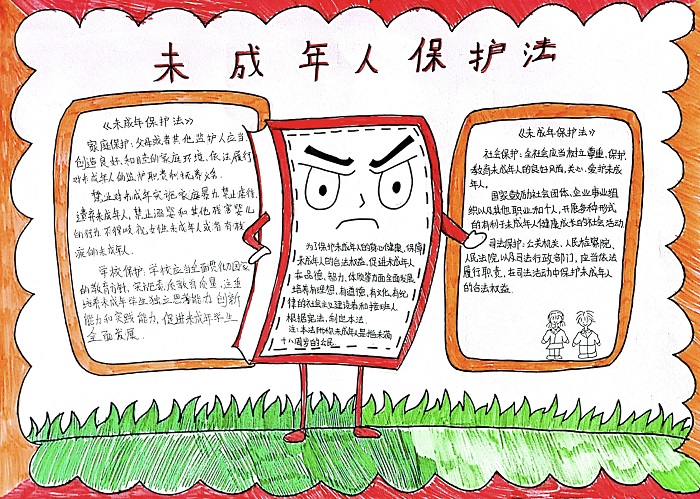 未成年人保护法
《未成年保护法》
家庭保护：父母或者其他监护人应当
创造良好、和睦的家庭环境，依法履行
对未成年人的监护职责和抚养义务。
禁止对未成年实施家庭暴力，禁止虐待、
遗弃未成年人，禁止溺婴和其他残害婴儿
的行为，不得歧视女性未成年或者有残
疾的未成年。
学校保护：学校应当全面贯彻国家
的教育方针，实施素质教育质量，注重
培养未成年学生独立思考能力、创新
能力和实践能力，促进未成年学生
全面发展。
为了保护未成年人的身心健康，保障
未成年人的合法权益，促进未成年人
在品德、智力、体质等方面全面发展，
培养有理想、有道德、有文化、有纪
律的社会主义建设者和接班人，
根据宪法，制定本法。
注：本法所称未成年人是指未满
十八周岁的公民。
《未成年保护法》
社会保护：全社会应当树立尊重、保护、
教育未成年人的良好风尚，关心、爱护未成
年人。
国家鼓励社会团体、企业事业组
织以及其他职业和个人，开展多种形式
的有利于未成年人健康成长的社会活动。
司法保护：公安机关、人民检察院、
人民法院以及司法行政部门，应当依法
履行职责，在司法活动中保护未成年人
的合法权益.